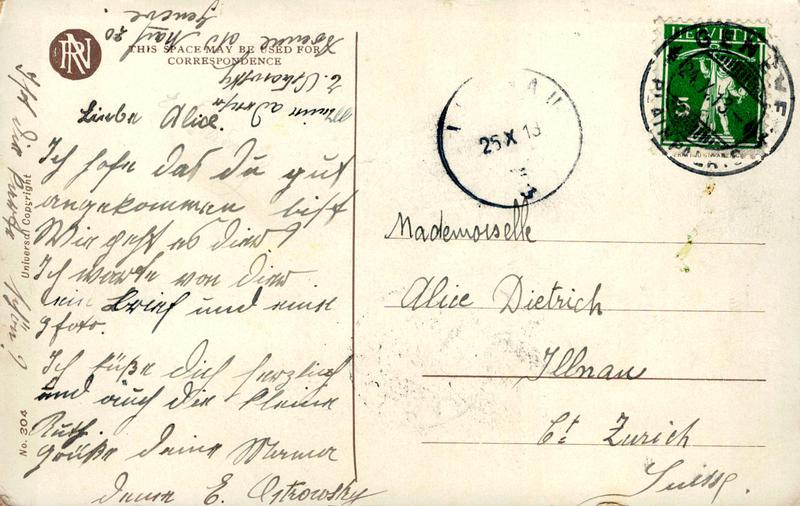 THIS SPACE MAY BE USED FOR
CORRESPONDENCE
Liebe Alice.
Ich hofe das du gut
angekommen bist
Wie geht es dier?
Ich warte von dier
ein Brief und eine
Ich küße dich herzlich
und auch die kleine
Ruth.
Grüße deine Mama
deine E. Ostrowsky
meine adresse
E. Ostrowsky
Genève
Universal Copyright
No. 304
HELVETIA
5
GENÈVE
25 X 13
Mademoiselle
Alice Dietrich
Illnau
Ct Zurich
Suisse.